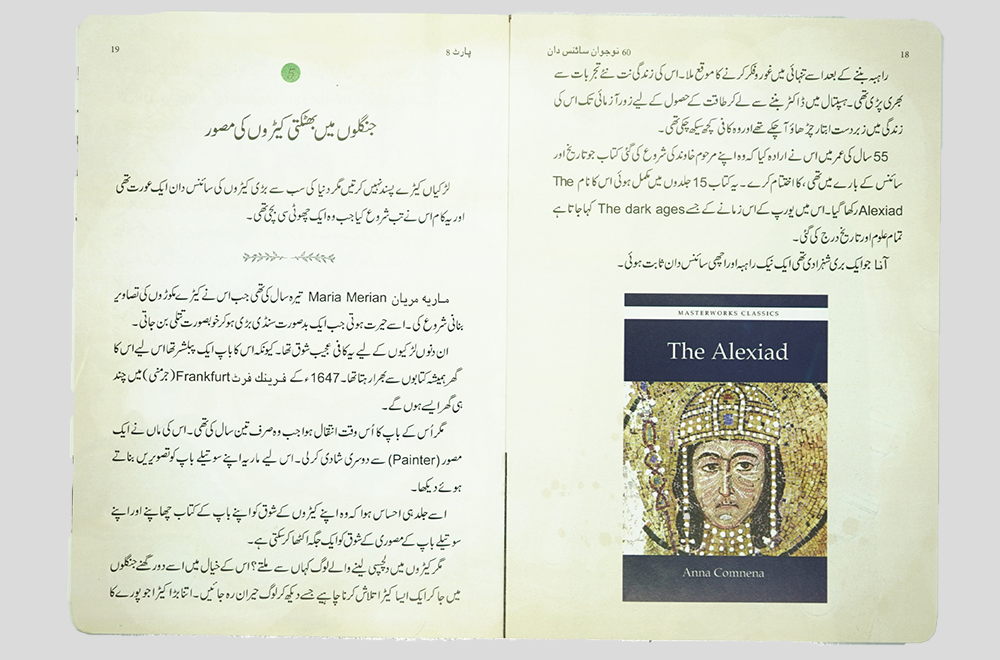 60 نوجوان سائنس دان
18
راہبہ بننے کے بعد اسے تنہائی میں غور و فکر کرنے کا موقع ملا۔ اس کی زندگی نت نئے تجربات سے
بھری پڑی تھی۔ ہسپتال میں ڈاکٹر بننے سے لے کر طاقت کے حصول کے لیے زور آزمائی تک اس کی
زندگی میں زبردست اتار چڑھاؤ آ چکے تھے اور وہ کافی کچھ سیکھ چکی تھی۔
55 سال کی عمر میں اس نے ارادہ کیا کہ وہ اپنے مرحوم خاوند کی شروع کی گئی کتاب جو تاریخ اور
سائنس کے بارے میں تھی، کا اختتام کرے۔ یہ کتاب 15 جلدوں میں مکمل ہوئی اس کا نام The
Alexiad رکھا گیا۔ اس میں یورپ کے اس زمانے کے جسے The dark ages کہا جاتا ہے
تمام علوم اور تاریخ درج کی گئی۔
آنا جو ایک بری شہزادی تھی ایک نیک راہبہ اور اچھی سائنس دان ثابت ہوئی۔
MASTERWORKS CLASSICS
The Alexiad
Anna Comnena
پارٹ 8
19
5
جنگلوں میں بھٹکتی کیڑوں کی مصور
لڑکیاں کیڑے پسند نہیں کرتیں مگر دنیا کی سب سے بڑی کیڑوں کی سائنس دان ایک عورت تھی
اور یہ کام اس نے تب شروع کیا جب وہ ایک چھوٹی سی بچی تھی۔
ماریہ مریان Maria Merian تیرہ سال کی تھی جب اس نے کیڑے مکوڑوں کی تصاویر
بنانی شروع کی۔ اسے حیرت ہوتی جب ایک بدصورت سنڈی بڑی ہو کر خوبصورت تتلی بن جاتی۔
ان دنوں لڑکیوں کے لیے یہ کافی عجیب شوق تھا۔ کیونکہ اس کا باپ ایک پبلشر تھا اس لیے اس کا
گھر ہمیشہ کتابوں سے بھرا رہتا تھا۔ 1647ء کے فرینک فرٹ Frankfurt (جرمنی) میں چند
ہی گھر ایسے ہوں گے۔
مگر اُس کے باپ کا اُس وقت انتقال ہوا جب وہ صرف تین سال کی تھی۔ اس کی ماں نے ایک
مصور (Painter) سے دوسری شادی کر لی۔ اس لیے ماریہ اپنے سوتیلے باپ کو تصویریں بناتے
ہوئے دیکھا۔
اسے جلد ہی احساس ہوا کہ وہ اپنے کیڑوں کے شوق کو اپنے باپ کے کتاب چھاپنے اور اپنے
سوتیلے باپ کے مصوری کے شوق کو ایک جگہ اکٹھا کر سکتی ہے۔
مگر کیڑوں میں دلچسپی لینے والے لوگ کہاں سے ملتے؟ اس کے خیال میں اسے دور گھنے جنگلوں
میں جا کر ایک ایسا کیڑا تلاش کرنا چاہیے جسے دیکھ کر لوگ حیران رہ جائیں۔ اتنا بڑا کیڑا جو پورے کا